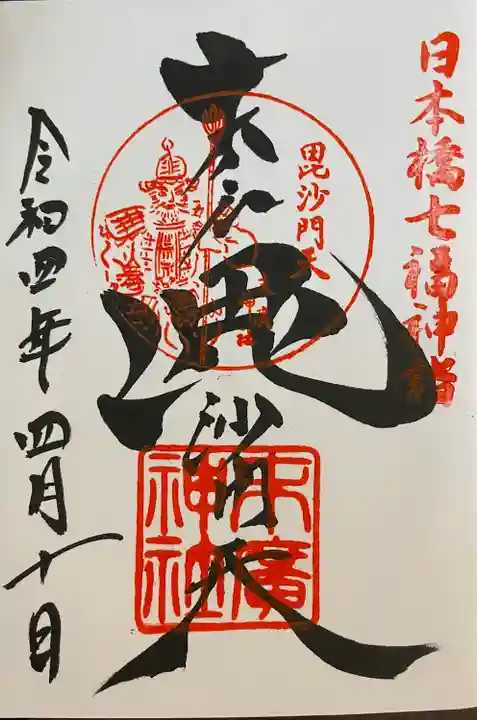 日本橋七福神詣
毘沙門天
末廣
毘沙門天
末廣
神社
令和四年四月十日